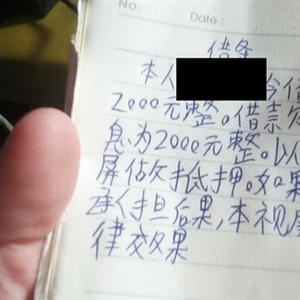 No:
Date:
借条
本人 今借
2000元整。借款
息为2000元整。以人
屏做抵押。如果
承担后果,本视
律效果